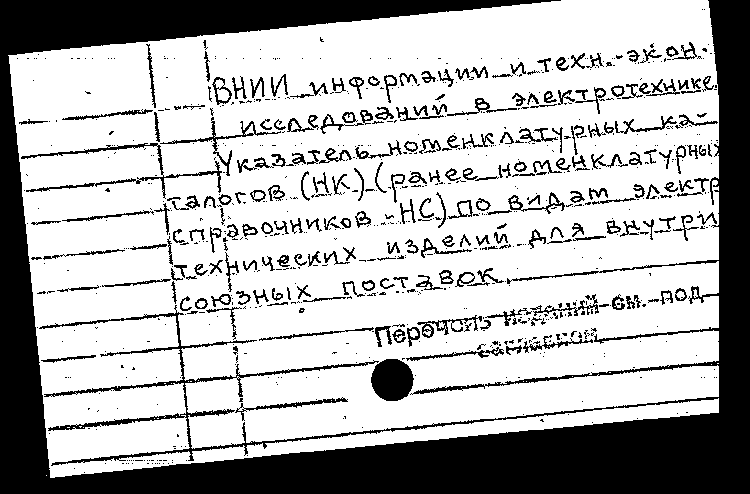 ВНИИ информации и техн.-экон.
исследований в электротехнике.
Указатель номенклатурных ка-
талогов (НК) (ранее номенклатурных
справочников -НС) по видам электр
технических изделий для внутри
союзных поставок.
Перечень изданий см. под
заглавием.